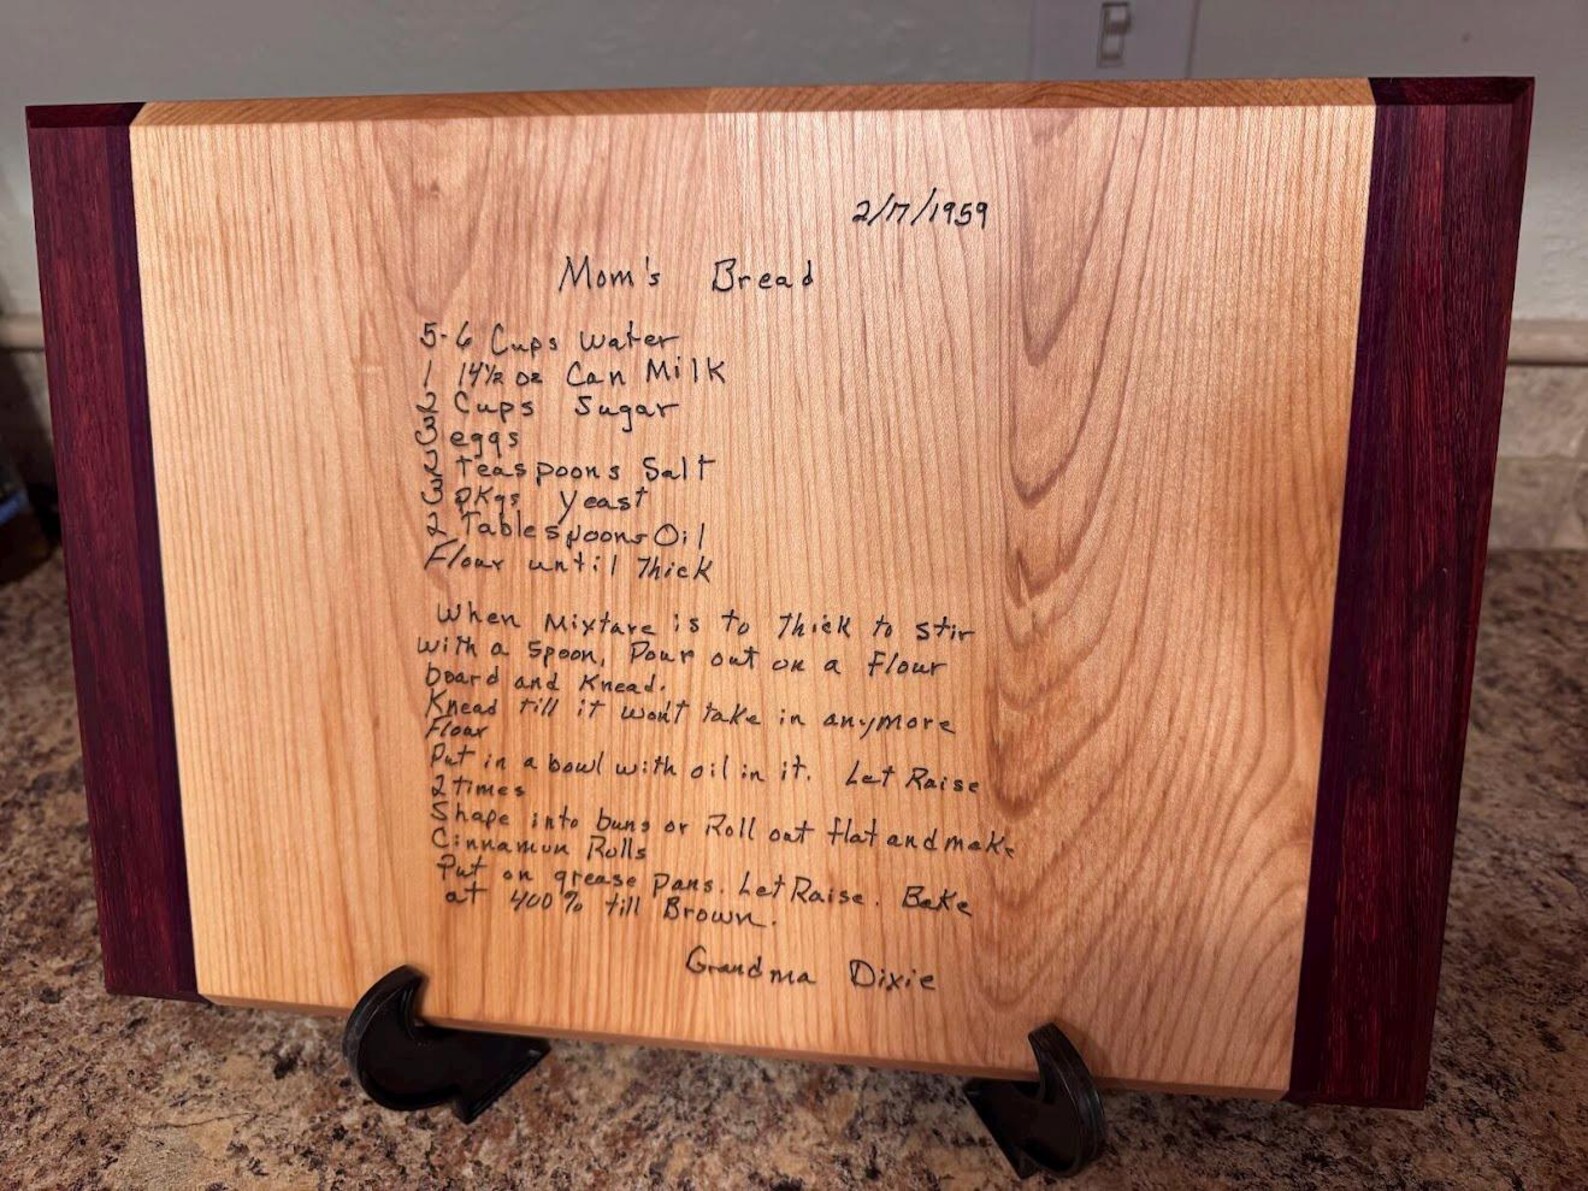 2/17/1959
Mom's Bread
5-6 Cups Water
1 14½ oz Can Milk
2 Cups Sugar
3 eggs
2 Teaspoons Salt
3 pkgs Yeast
2 Tablespoons Oil
Flour until Thick
When Mixture is to Thick to stir
with a spoon, Pour out on a Flour
board and Knead.
Knead till it won't take in anymore
Flour
Put in a bowl with oil in it. Let Raise
2 times
Shape into buns or Roll out flat and make
Cinnamon Rolls
Put on grease Pans. Let Raise. Bake
at 400% till Brown.
Grandma Dixie